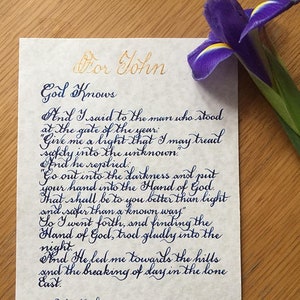 For John
God Knows
And I said to the man who stood
at the gate of the year:
"Give me a light that I may tread
safely into the unknown."
And he replied:
"Go out into the darkness and put
your hand into the Hand of God.
That shall be to you better than light
and safer than a known way."
So I went forth, and finding the
Hand of God, trod gladly into
the night.
And He led me towards the hills
and the breaking of day in the lone
East.